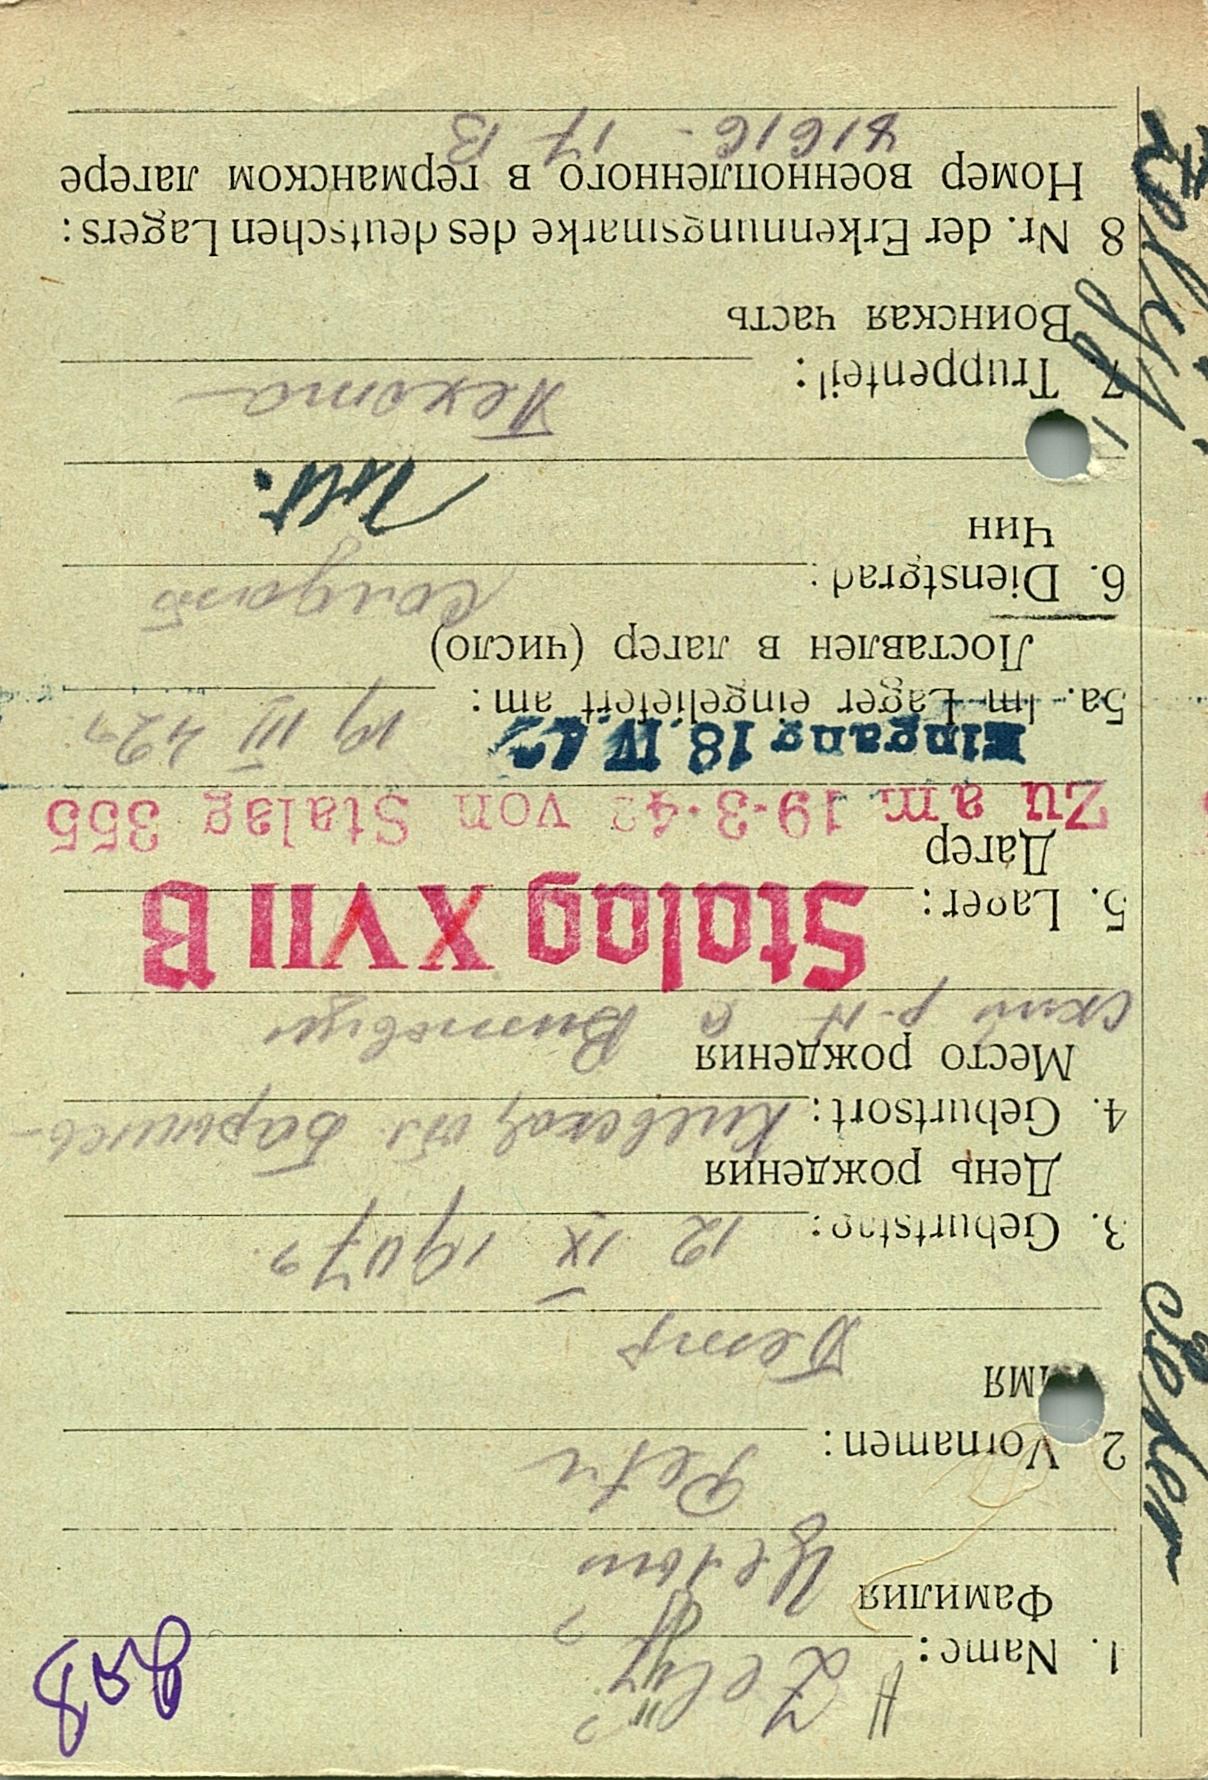 1. Name: Zelyj
Фамилия Целый
2 Vornamen: Petr
Имя Петр
3. Geburtstag: 12 IX 1907 г
День рождения
4. Geburtsort: Киевской обл. Барышев-
Место рождения
ский р-н с
5. Lager: Stalag XVII B
Лагер
Zu am 19.3.42 von Stalag 355
Eingang 18. IV 42
5a. Im Lager eingeliefert am: 19 III 42 г
Поставлен в лагер (число)
6. Dienstgrad: Солдат
Чин
7. Truppenteil: Пехота
Воинская часть
8 Nr. der Erkennungsmarke des deutschen Lagers:
Номер военнопленного в германском лагере
81616 - 17 B
Zelyj